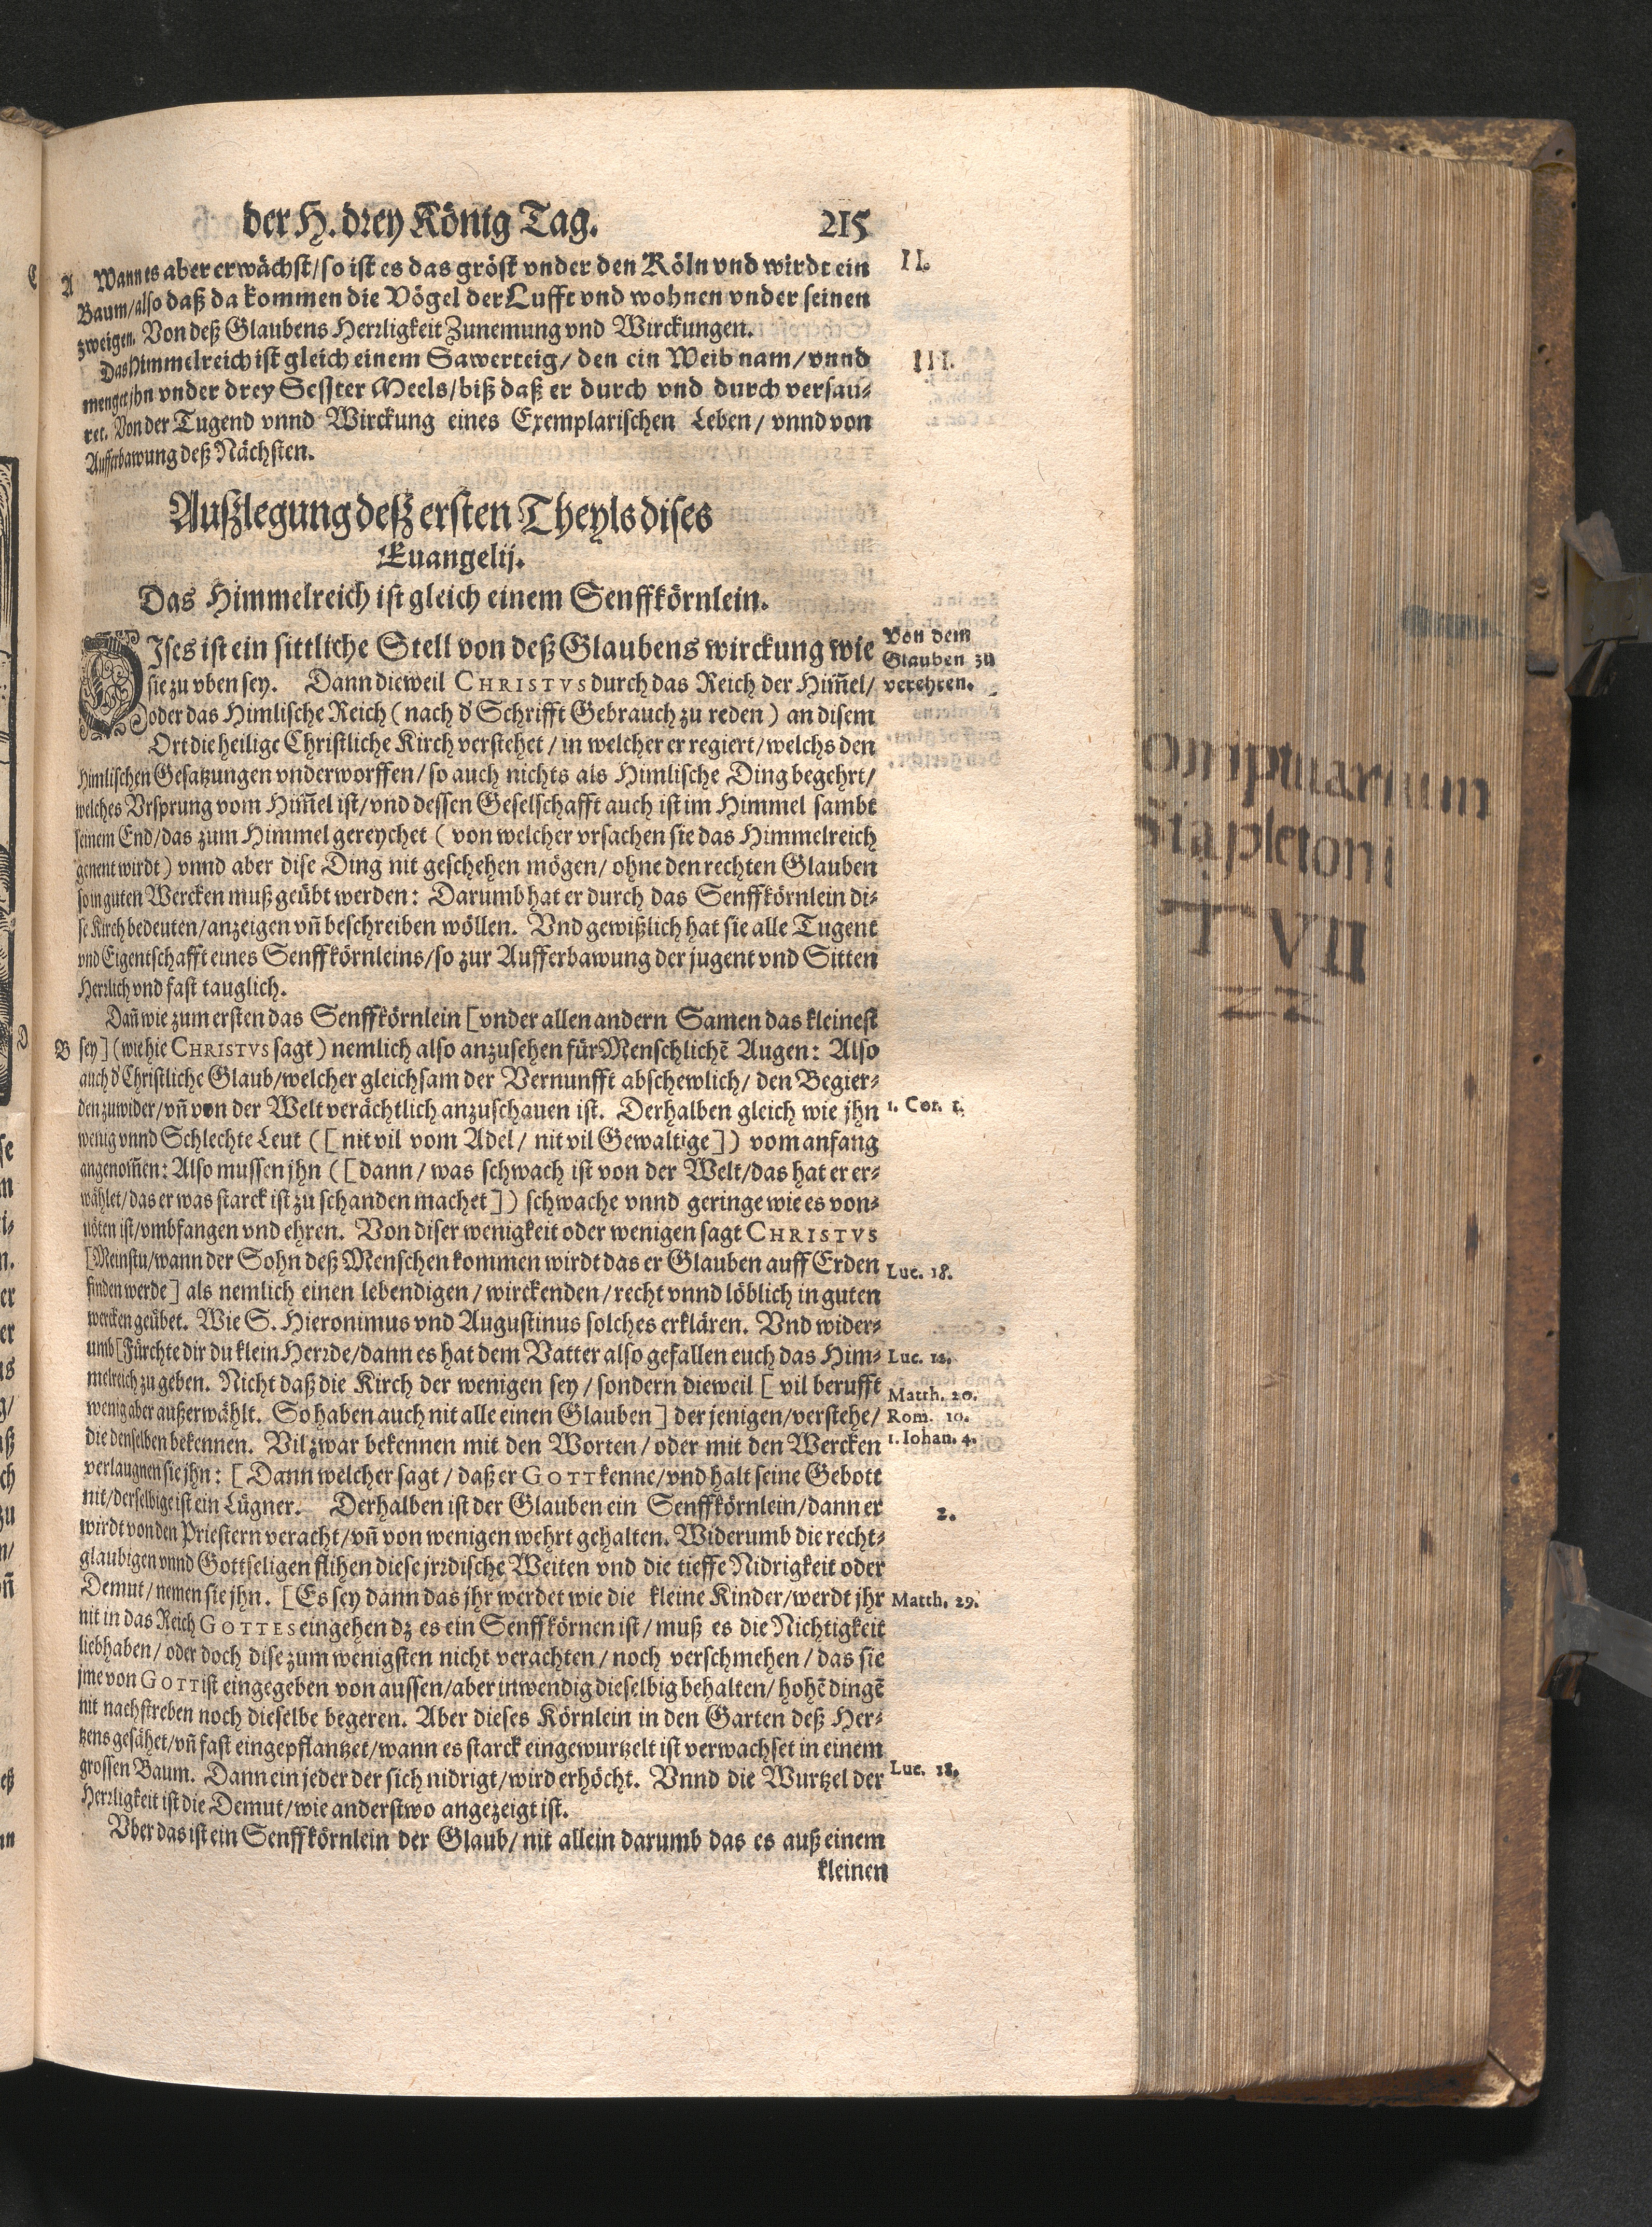 der H. drey König Tag. 215
A Wann es aber erwächst/so ist es das gröst vnder den Köln vnd wirdt ein II.
Baum/also daß da kommen die Vögel der Lufft vnd wohnen vnder seinen
zweigen. Von deß Glaubens Herrligkeit Zunemung vnd Wirckungen.
Das Himmelreich ist gleich einem Sawerteig/ den ein Weib nam/vnnd III.
menget jhn vnder drey Sester Meels/biß daß er durch vnd durch versau-
ret. Von der Tugend vnnd Wirckung eines Exemplarischen Leben/ vnnd von
Aufferbawung deß Nächsten.
Außlegung deß ersten Theyls dises
Euangelij.
Das Himmelreich ist gleich einem Senffkörnlein.
DIses ist ein sittliche Stell von deß Glaubens wirckung wie Von dem
sie zu vben sey. Dann dieweil CHRISTVS durch das Reich der Him̃el/ Glauben zu
oder das Himlische Reich (nach d' Schrifft Gebrauch zu reden) an disem verehren.
Ort die heilige Christliche Kirch verstehet/in welcher er regiert/welchs den
Himlischen Gesatzungen vnderworffen/so auch nichts als Himlische Ding begehrt/
welches Vrsprung vom Him̃el ist/vnd dessen Geselschafft auch ist im Himmel sambt
seinem End/das zum Himmel gereychet (von welcher vrsachen sie das Himmelreich
genent wirdt) vnnd aber dise Ding nit geschehen mögen/ohne den rechten Glauben
so in guten Wercken muß geübt werden: Darumb hat er durch das Senffkörnlein di-
se Kirch bedeuten/anzeigen vñ beschreiben wöllen. Vnd gewißlich hat sie alle Tugent
vnd Eigentschafft eines Senffkörnleins/so zur Aufferbawung der jugent vnd Sitten
Herrlich vnd fast tauglich.
Dañ wie zum ersten das Senffkörnlein [vnder allen andern Samen das kleinest
B sey] (wie hie CHRISTVS sagt) nemlich also anzusehen für Menschlichẽ Augen: Also
auch d' Christliche Glaub/welcher gleichsam der Vernunfft abschewlich/ den Begier-
den zuwider/vñ von der Welt verächtlich anzuschauen ist. Derhalben gleich wie jhn 1. Cor. 1.
wenig vnnd Schlechte Leut ([nit vil vom Adel/ nit vil Gewaltige]) vom anfang
angenom̃en: Also mussen jhn ([dann/ was schwach ist von der Welt/das hat er er-
wählet/das er was starck ist zu schanden machet]) schwache vnnd geringe wie es von-
nöten ist/vmbfangen vnd ehren. Von diser wenigkeit oder wenigen sagt CHRISTVS
[Meinstu/wann der Sohn deß Menschen kommen wirdt das er Glauben auff Erden
finden werde] als nemlich einen lebendigen/wirckenden/recht vnnd löblich in guten Luc. 18.
wercken geübet. Wie S. Hieronimus vnd Augustinus solches erklären. Vnd wider-
umb [Fürchte dir du klein Herrde/dann es hat dem Vatter also gefallen euch das Him- Luc. 12.
melreich zu geben. Nicht daß die Kirch der wenigen sey/sondern dieweil [vil berufft Matth. 20.
wenig aber außerwählt. So haben auch nit alle einen Glauben] der jenigen/verstehe/ Rom. 10.
die denselben bekennen. Vil zwar bekennen mit den Worten/oder mit den Wercken 1. Iohan. 4.
verlaugnen sie jhn: [Dann welcher sagt/daß er GOTT kenne/vnd halt seine Gebott
nit/derselbige ist ein Lügner. Derhalben ist der Glauben ein Senffkörnlein/dann er 2.
wirdt von den Priestern veracht/vñ von wenigen wehrt gehalten. Widerumb die recht-
glaubigen vnnd Gottseligen flihen diese jrrdische Weiten vnd die tieffe Nidrigkeit oder
Demut/nemen sie jhn. [Es sey dann das jhr werdet wie die kleine Kinder/werdt jhr Matth. 29.
nit in das Reich GOTTES eingehen dz es ein Senffkörnen ist/muß es die Nichtigkeit
liebhaben/oder doch dise zum wenigsten nicht verachten/noch verschmehen/das sie
jme von GOTT ist eingegeben von aussen/aber inwendig dieselbig behalten/hohẽ dingẽ
nit nachstreben noch dieselbe begeren. Aber dieses Körnlein in den Garten deß Her-
tzens gesähet/vñ fast eingepflantzet/wann es starck eingewurtzelt ist verwachset in einem
grossen Baum. Dann ein jeder der sich nidrigt/wird erhöcht. Vnnd die Wurtzel der Luc. 18.
Herrligkeit ist die Demut/wie anderstwo angezeigt ist.
Vber das ist ein Senffkörnlein der Glaub/nit allein darumb das es auß einem
kleinen
Stapletoni
T VII